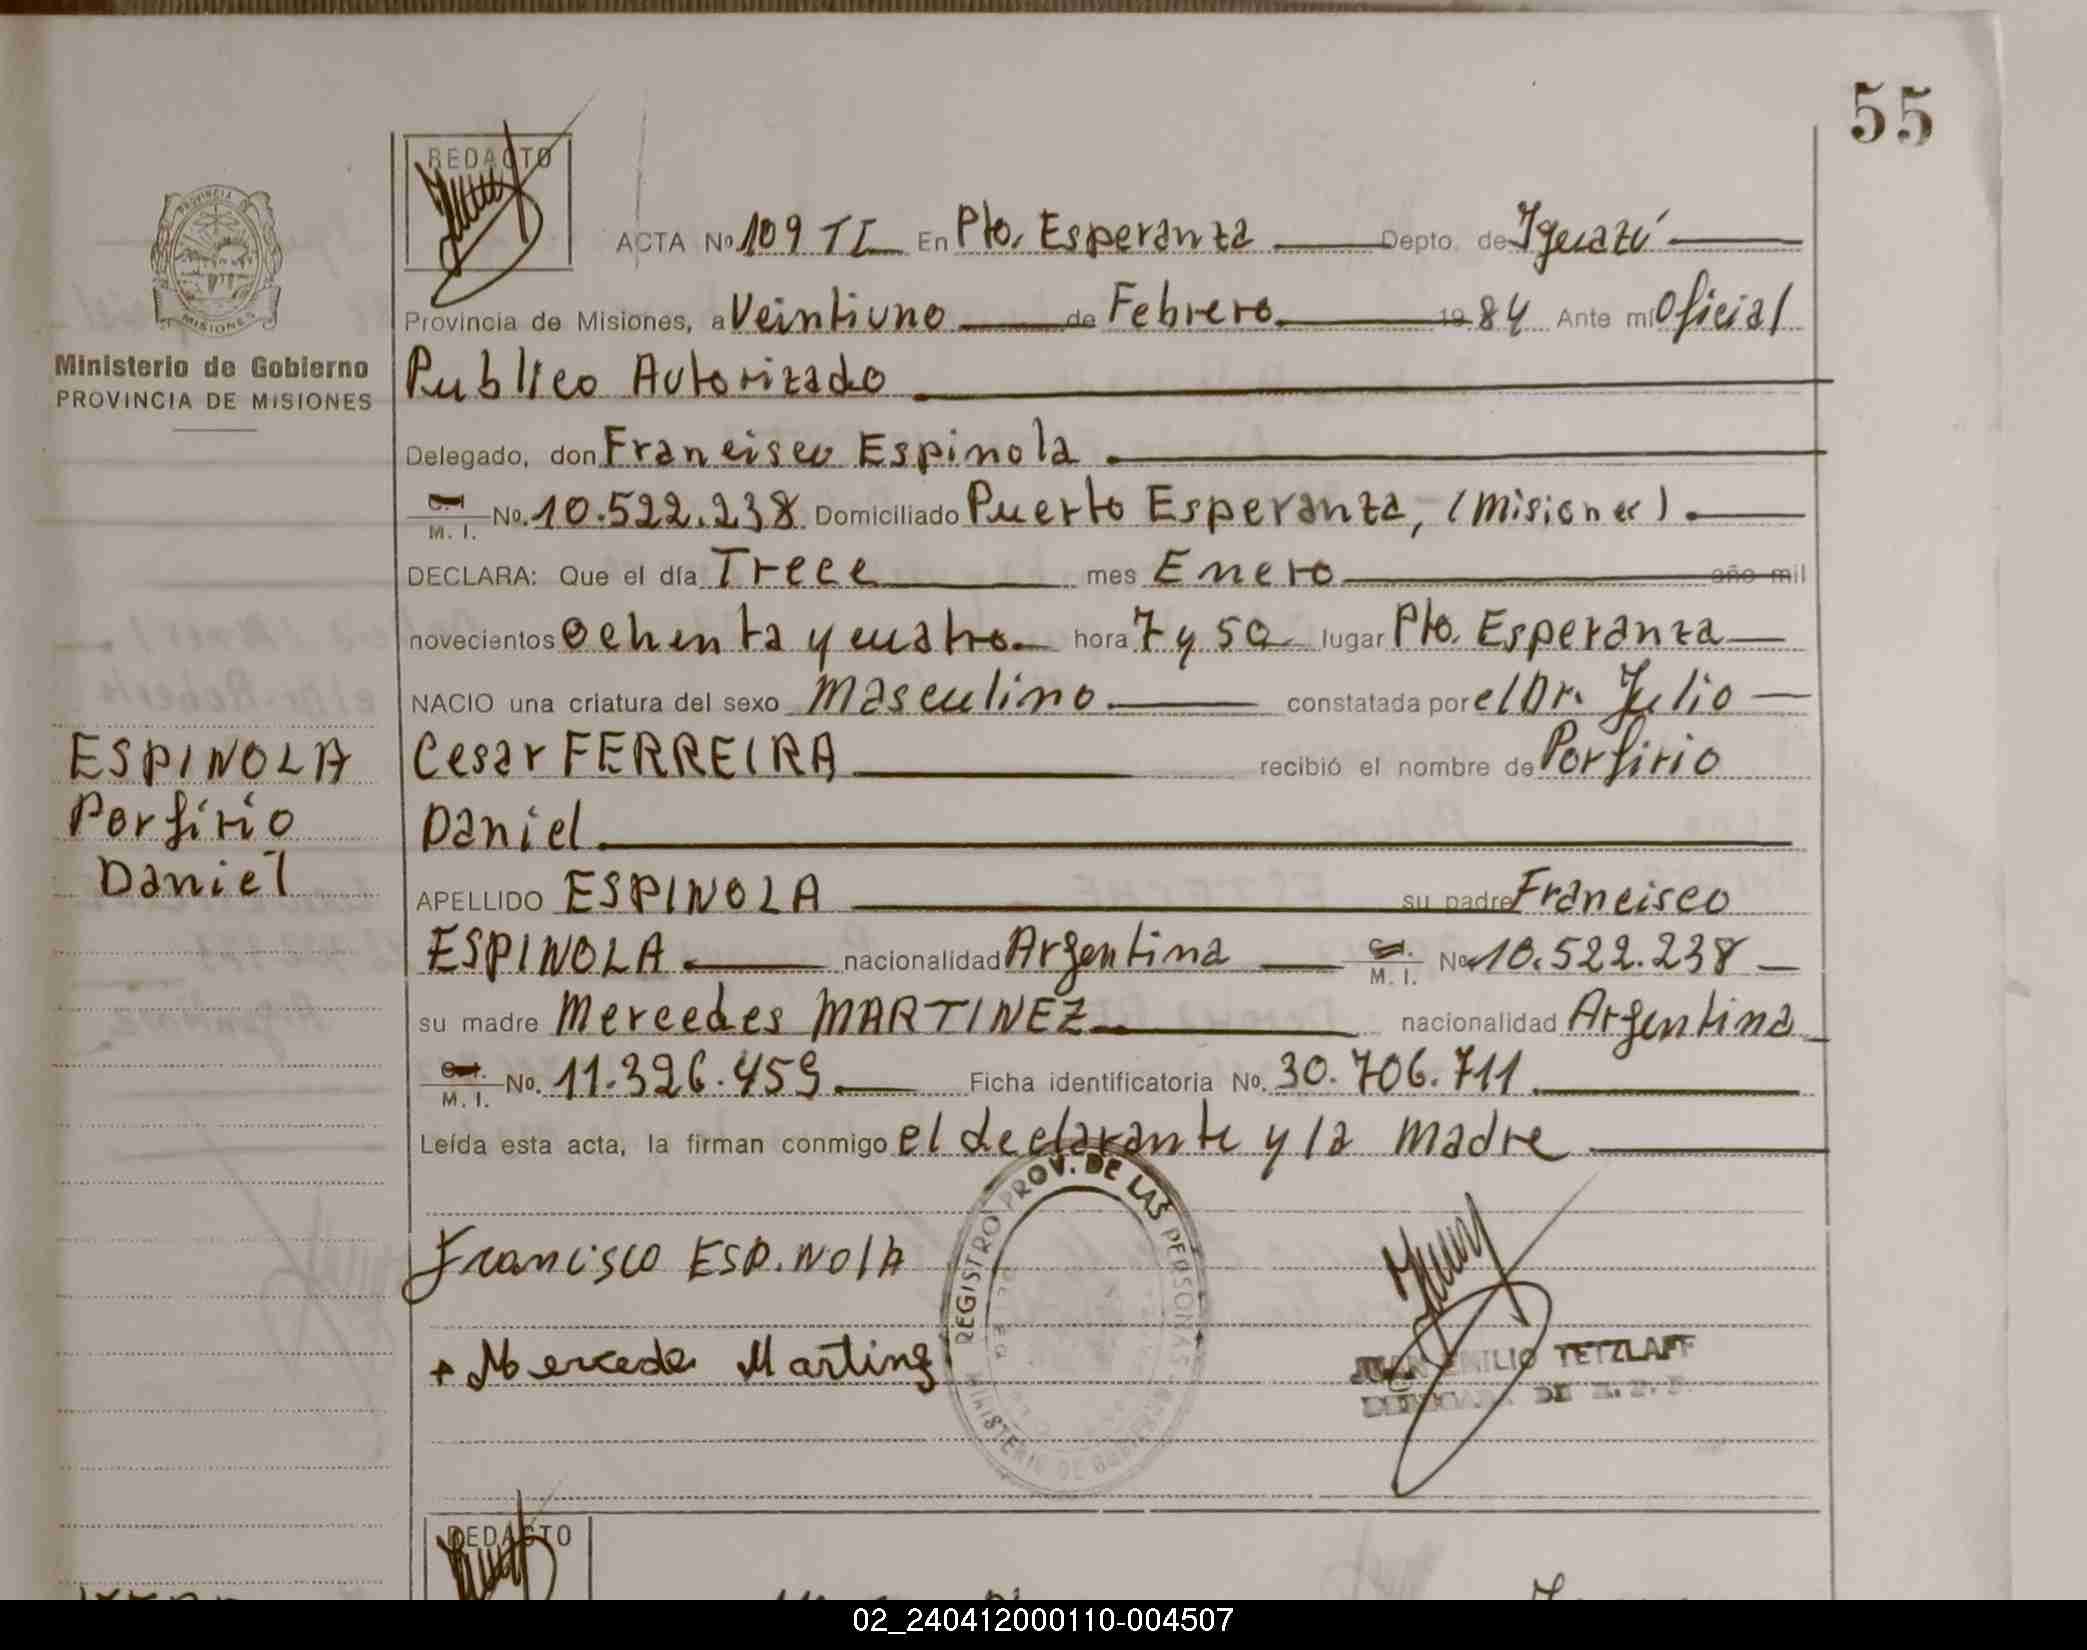 55
REDACTO
PROVINCIA DE
MISIONES
Ministerio de Gobierno
PROVINCIA DE MISIONES
ACTA No 109 TI En Pto. Esperanza Depto. de Iguazú
Provincia de Misiones, a Veintiuno de Febrero 1984 Ante mi Oficial
Publico Autorizado
Delegado, don Francisco Espinola
C.I. M. I. No. 10.522.238 Domiciliado Puerto Esperanza, (Misiones).
DECLARA: Que el día Trece mes Enero año mil
novecientos Ochenta y cuatro. hora 7 y 50 lugar Pto. Esperanza
NACIO una criatura del sexo Masculino constatada por el Dr. Julio
Cesar FERREIRA recibió el nombre de Porfirio
Daniel
APELLIDO ESPINOLA su padre Francisco
ESPINOLA nacionalidad Argentina C.I. M. I. No. 10.522.238
su madre Mercedes MARTINEZ nacionalidad Argentina
C.I. M. I. No. 11.326.459 Ficha identificatoria No. 30.706.711
Leída esta acta, la firman conmigo el declarante y la madre
ESPINOLA
Porfirio
Daniel
REGISTRO PROV. DE LAS PERSONAS
MINISTERIO DE GOBIERNO
Francisco ESP.NOlA
+ Mercedes Martinez
JUAN EMILIO TETZLAFF
REDACTO
02_240412000110-004507